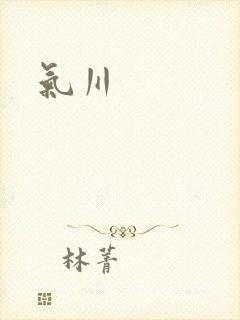 氣川
林菁